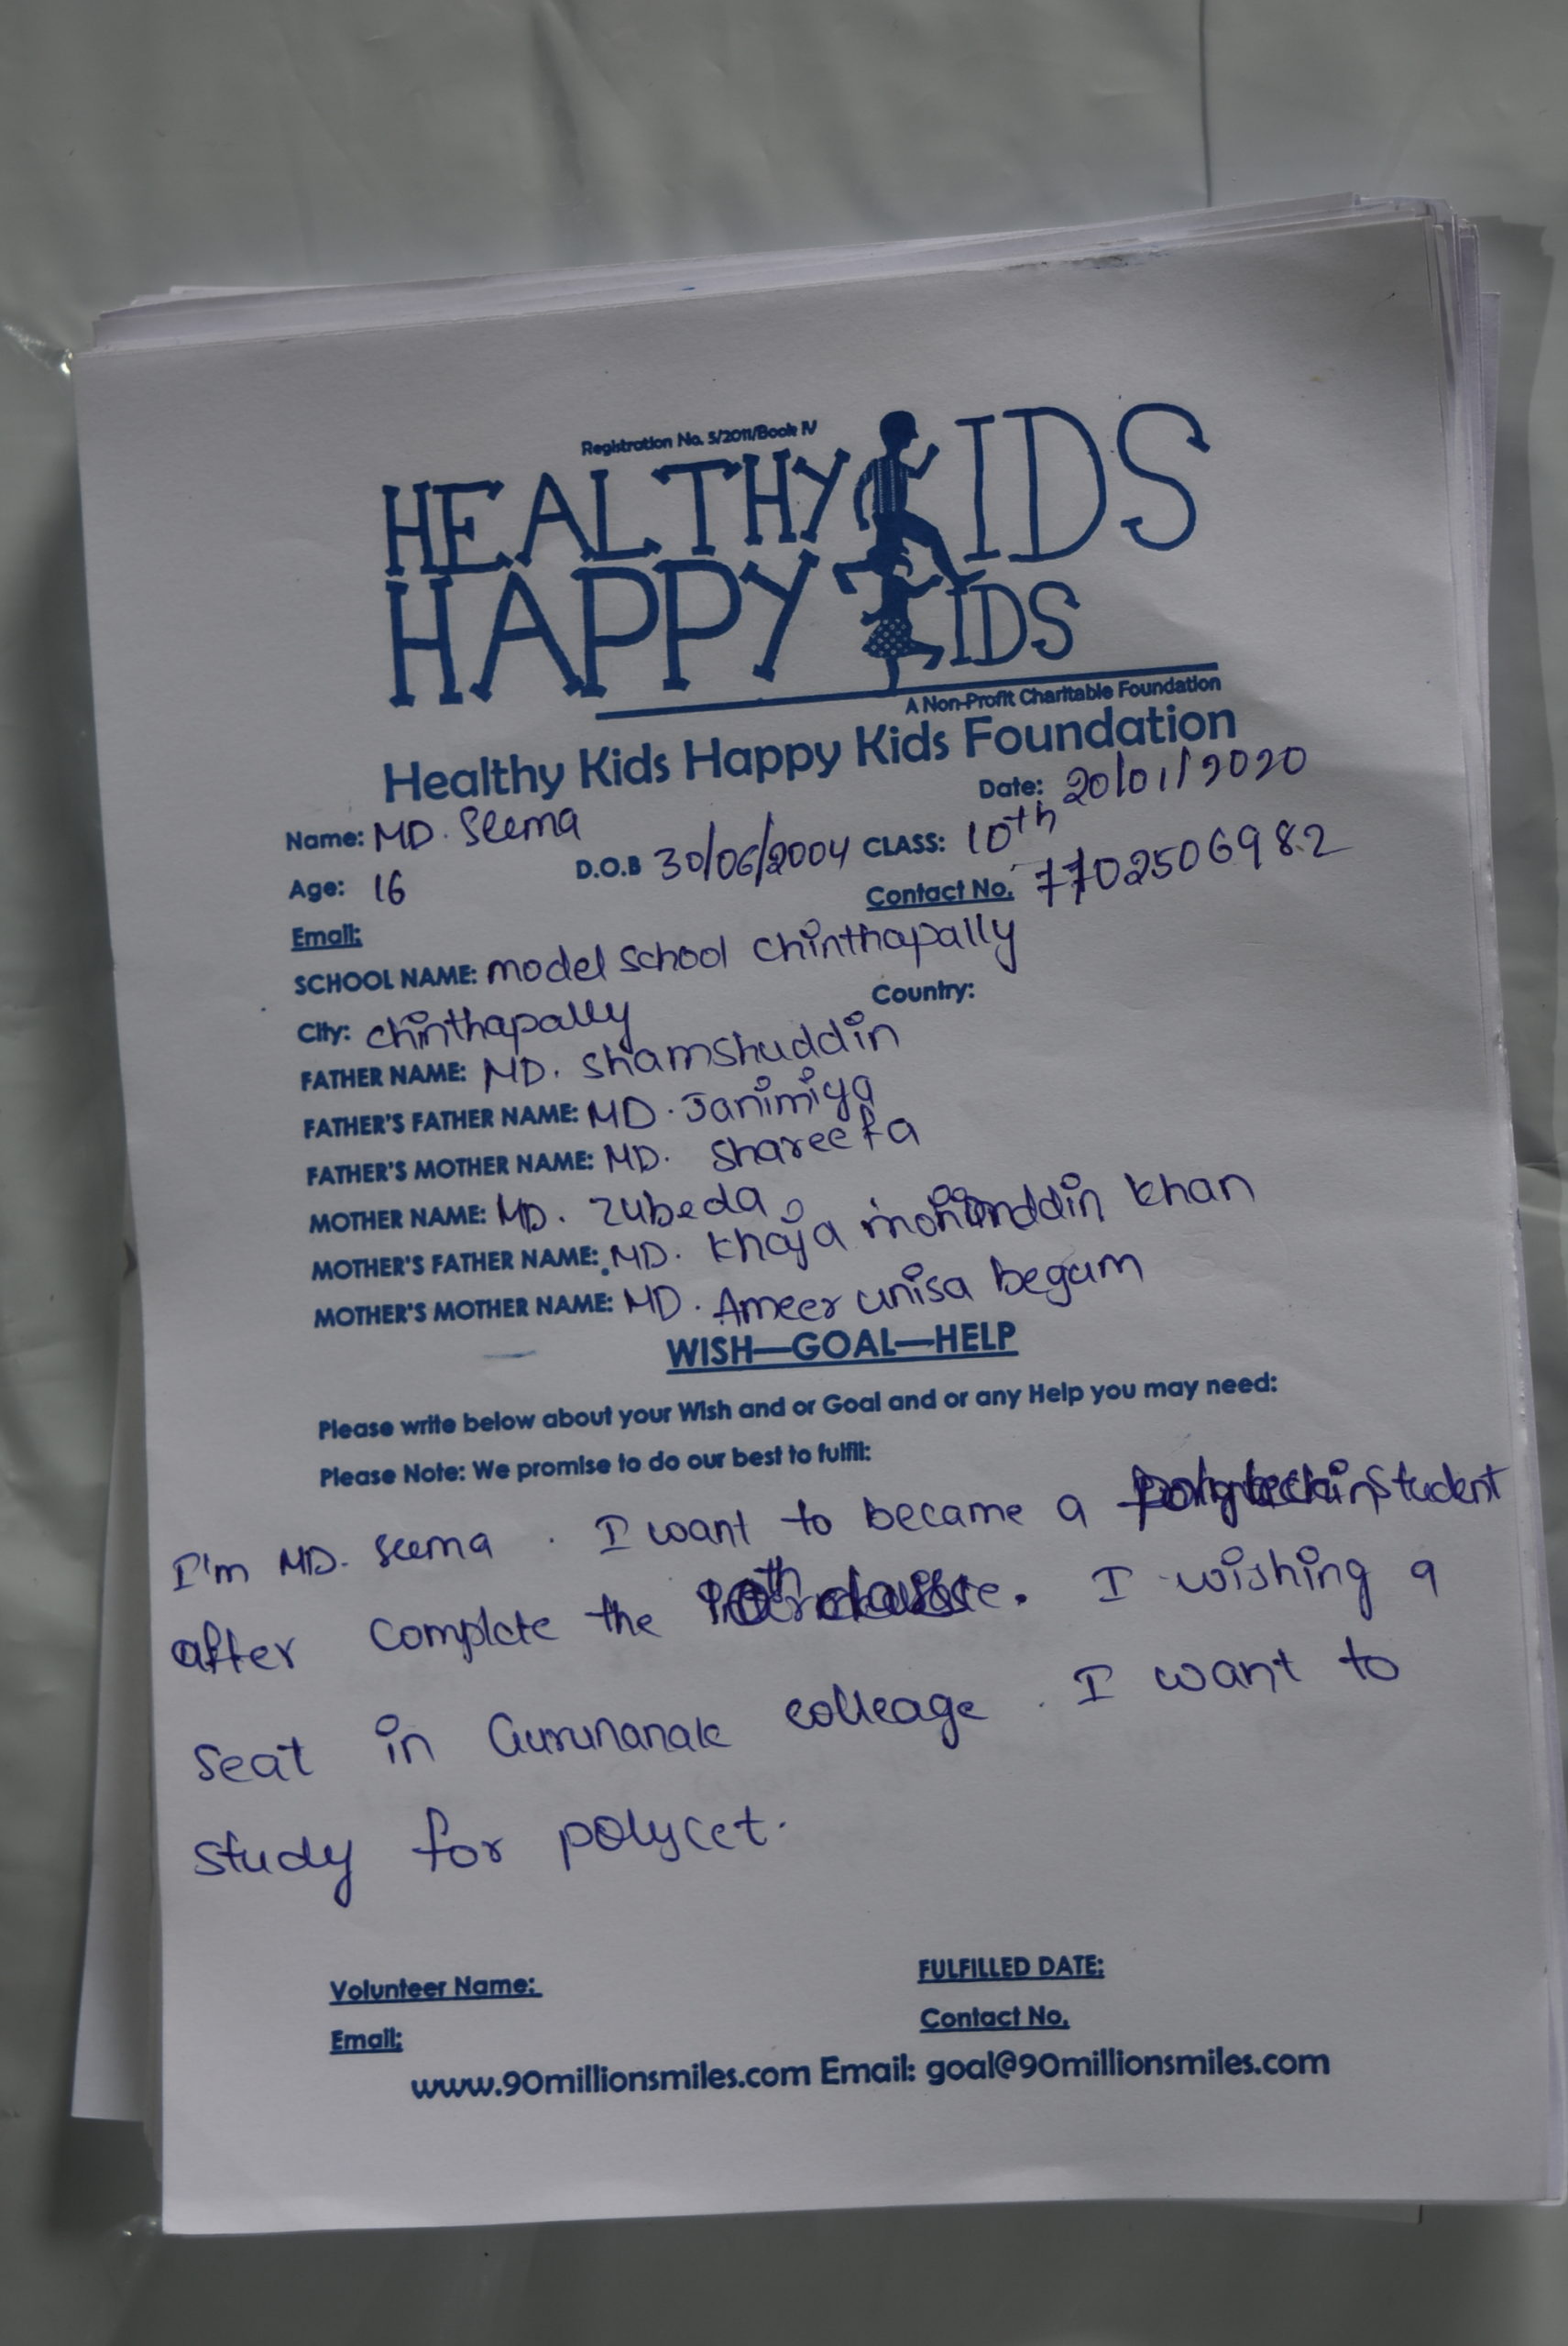 Registration No. 5/2011/Book IV
HEALTHY KIDS
HAPPY KIDS
A Non-Profit Charitable Foundation
Healthy Kids Happy Kids Foundation
Date: 20/01/2020
Name: MD. Seema
D.O.B 30/06/2004 CLASS: 10th
Age: 16
Contact No. 7702506982
Email:
SCHOOL NAME: model school chinthapally
City: chinthapally Country:
FATHER NAME: MD. shamshuddin
FATHER'S FATHER NAME: MD. Janimiya
FATHER'S MOTHER NAME: MD. shareefa
MOTHER NAME: MD. zubeda
MOTHER'S FATHER NAME: MD. khaja khan
MOTHER'S MOTHER NAME: MD. Ameer unisa begum
WISH—GOAL—HELP
Please write below about your Wish and or Goal and or any Help you may need:
Please Note: We promise to do our best to fulfil:
I'm MD. seema . I want to became a student
after complete the 10th class. I wishing a
seat in Gurunanak colleage . I want to
study for polycet.
Volunteer Name: FULFILLED DATE:
Email: Contact No.
www.90millionsmiles.com Email: goal@90millionsmiles.com